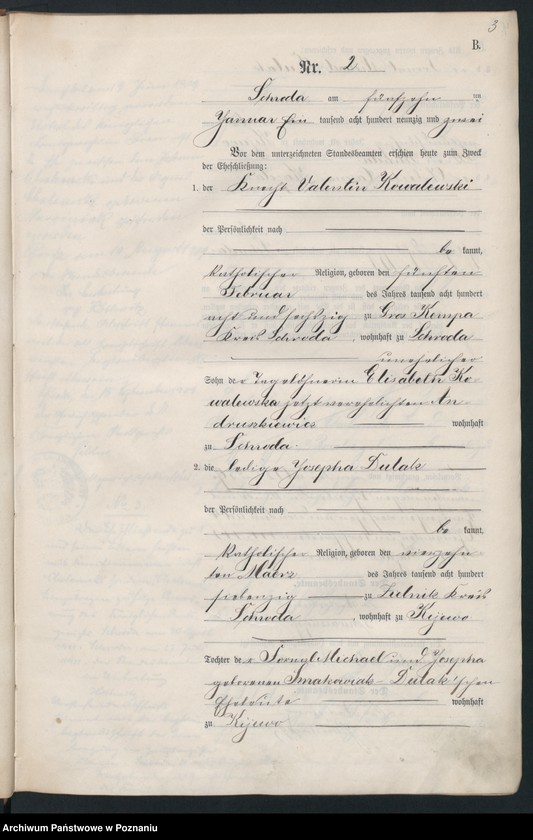 3
B.
Nr. 2
Schroda am fünfzehn ten
Januar Ein tausend acht hundert neunzig und zwei
Vor dem unterzeichneten Standesbeamten erschien heute zum Zweck
der Eheschließung:
1. der Knecht Valentin Kowalewski
der Persönlichkeit nach
be kannt,
katholischer Religion, geboren den fünften
Februar des Jahres tausend acht hundert
acht und sechszig zu Gros Kempa
Kreis Schroda, wohnhaft zu Schroda
unehelicher
Sohn der Tagelöhnerin Elisabeth Ko-
walewska jetzt verehelichten An-
druszkiewicz wohnhaft
zu Schroda.
2. die ledige Josepha Dulak
der Persönlichkeit nach
be kannt,
katholischer Religion, geboren den vierzehn
ten Maerz des Jahres tausend acht hundert
siebenzig zu Zrelnik Kreis
Schroda, wohnhaft zu Kijewo
Tochter der Michael und Josepha
geborenen Dulak'schen
Eheleute wohnhaft
zu Kijewo
Archiwum Państwowe w Poznaniu